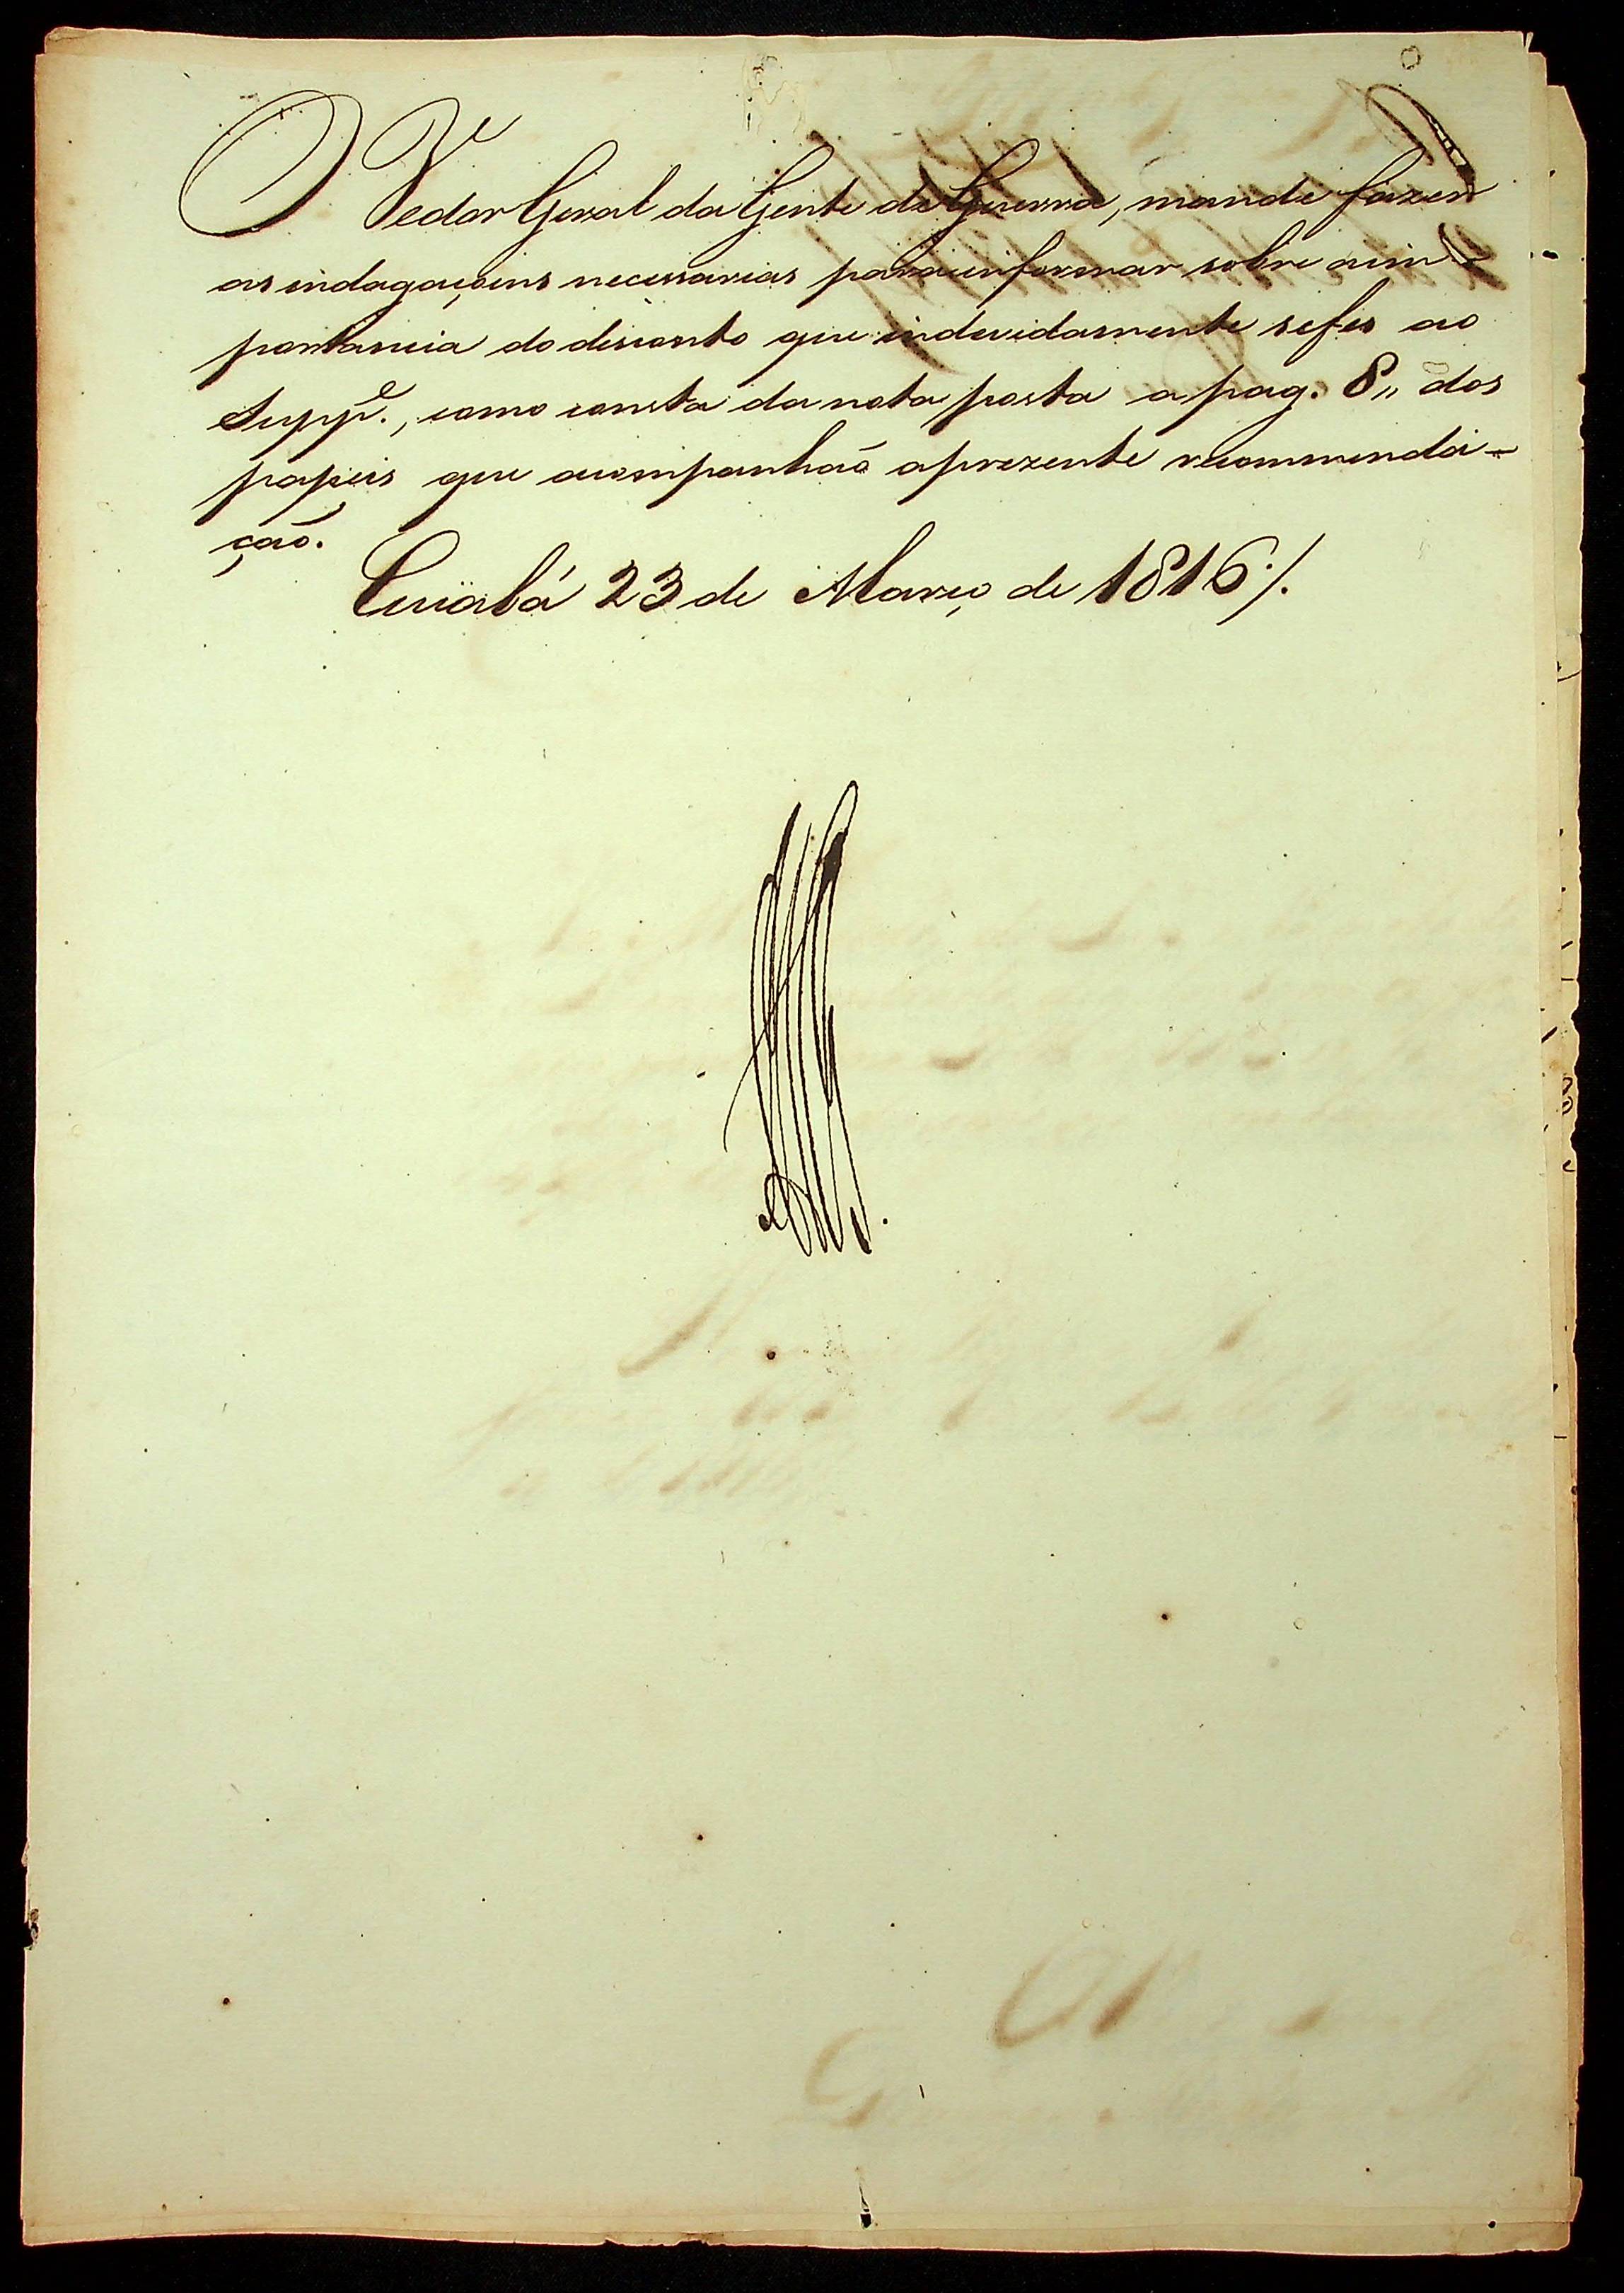 O Vedor Geral da Gente de Guerra, mande fazer
as indagaçoins necessarias para informar sobre a im-
portancia do disconto que indevidamente se fes ao
Supp.e, como consta da nota posta a pag. 8,, dos
papeis que acompanhaõ a prezente recommenda-
çaõ.
Cuiabá 23 de Março de 1816 ./.